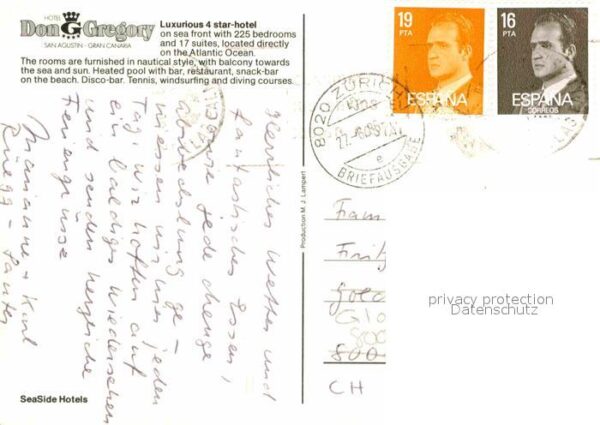 HOTEL
Don Gregory
SAN AGUSTIN - GRAN CANARIA
Luxurious 4 star-hotel
on sea front with 225 bedrooms
and 17 suites, located directly
on the Atlantic Ocean.
The rooms are furnished in nautical style, with balcony towards
the sea and sun. Heated pool with bar, restaurant, snack-bar
on the beach. Disco-bar. Tennis, windsurfing and diving courses.
19
PTA
ESPAÑA
16
PTA
ESPAÑA
CORREOS
8020 ZÜRICH
e
BRIEFAUSGABE
Herrliches Wetter und
fantastisches Essen,
sowie jede Menge
Abwechslung ge-
niessen wir hier jeden
Tag, wir hoffen auf
ein baldiges Wiedersehen
und senden herzliche
Feriengrüsse
Marianne + Kurt
Rüegg -
Production M. J. Lampert
Fritz
800
CH
privacy protection
Datenschutz
SeaSide Hotels